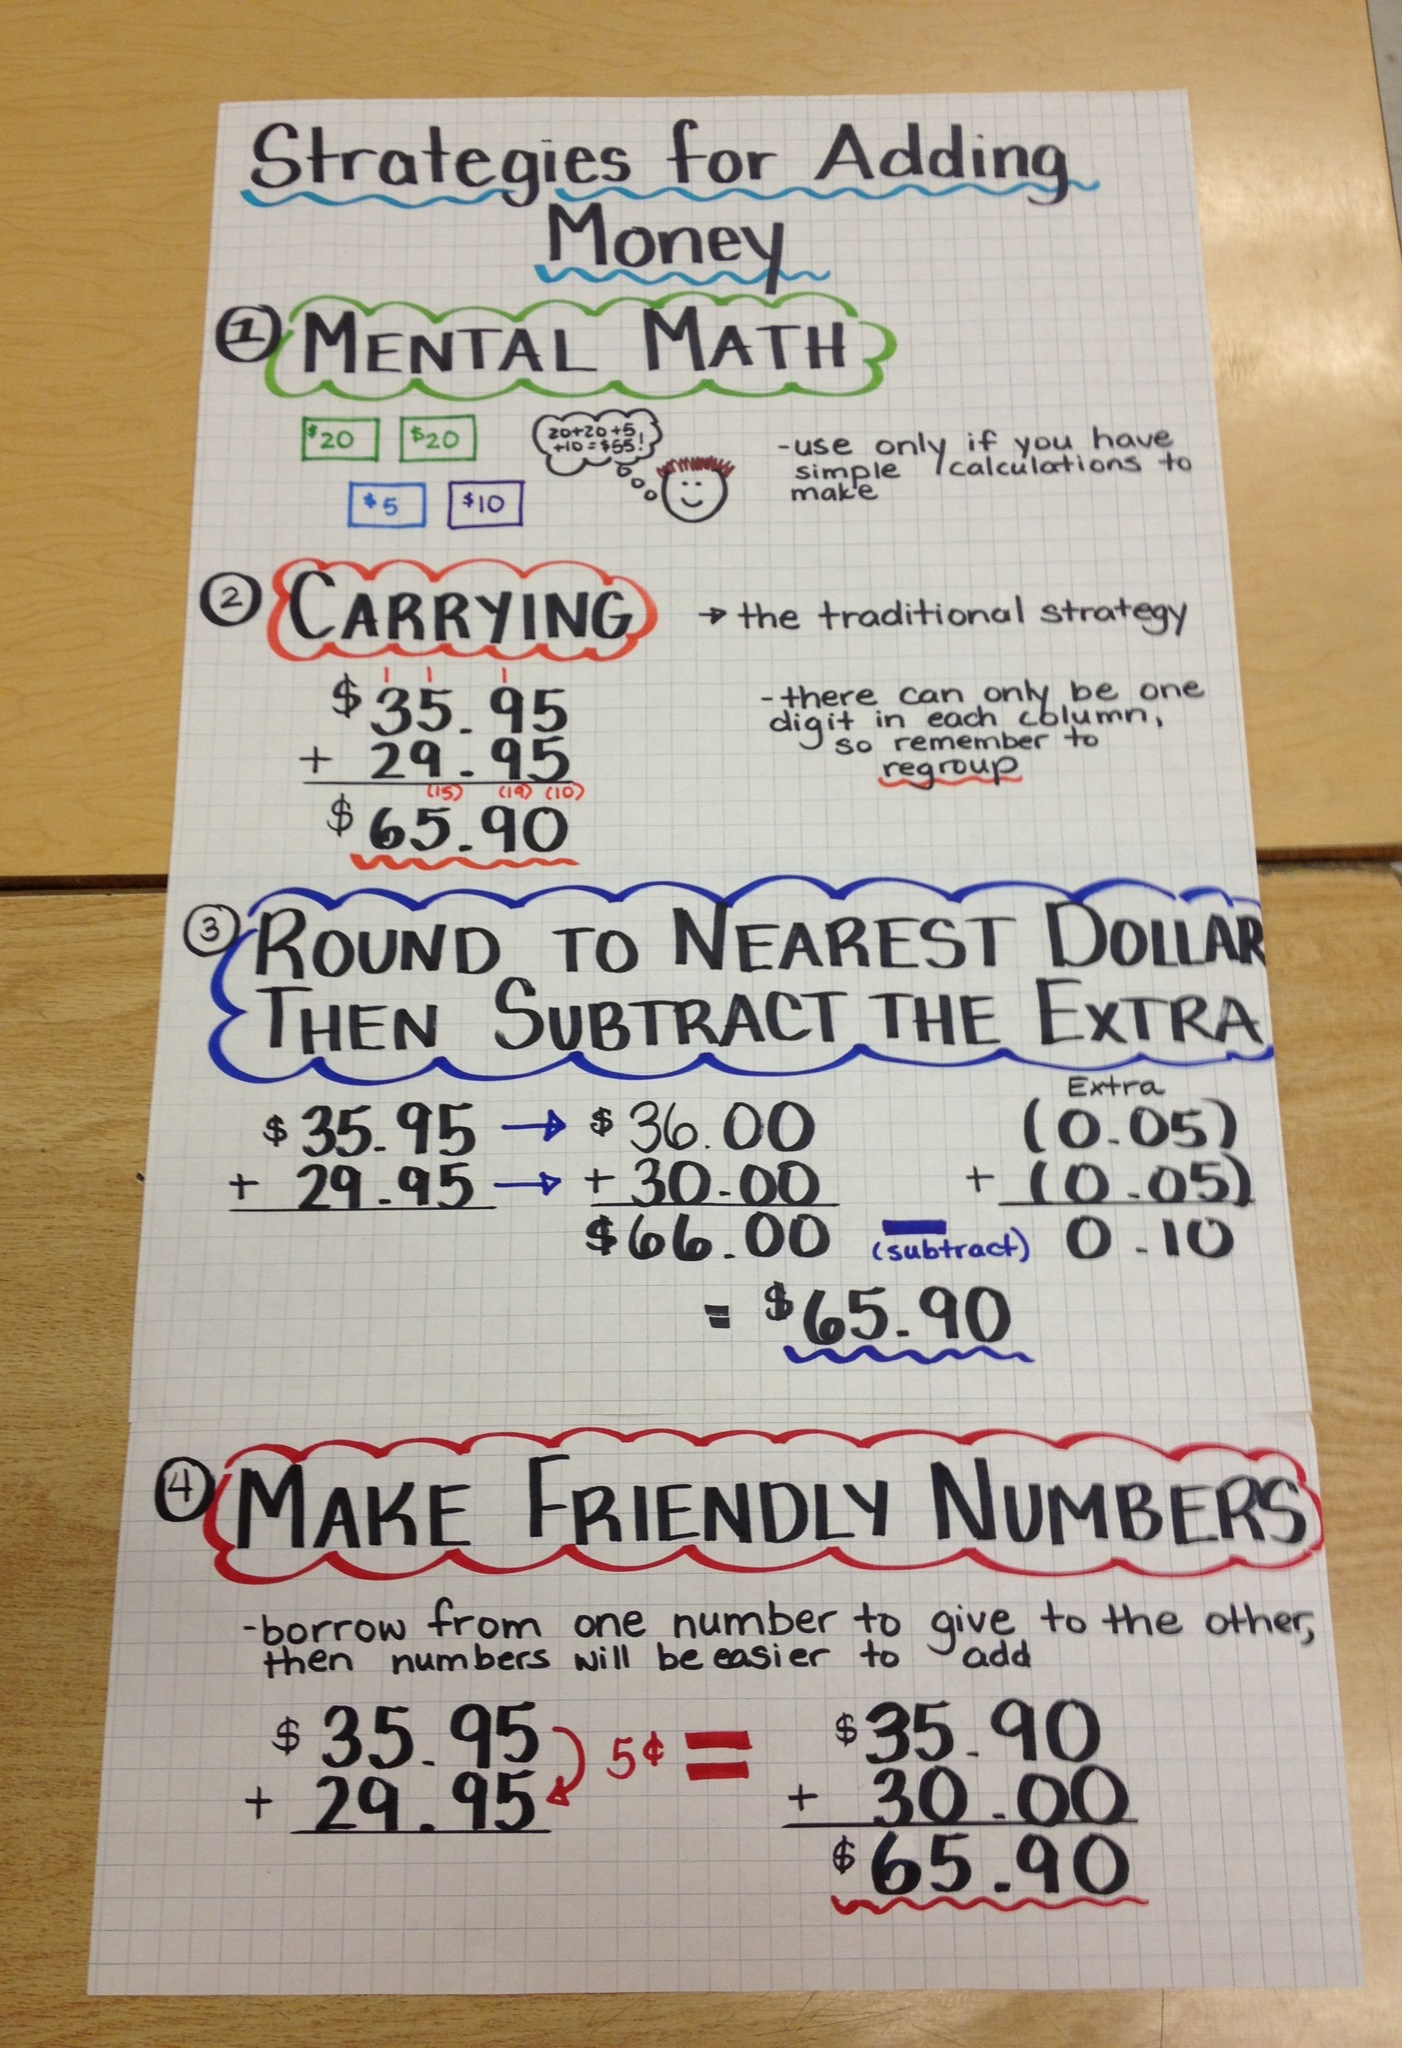 Strategies for Adding
Money
1 MENTAL MATH
$20 $20
20+20+5
+10=$55!
$5 $10
-use only if you have
simple calculations to
make
2 CARRYING → the traditional strategy
1 1 1
$35.95
+ 29.95
(15) (19) (10)
$65.90
-there can only be one
digit in each column,
so remember to
regroup
3 ROUND TO NEAREST DOLLAR
THEN SUBTRACT THE EXTRA
Extra
$35.95 → $36.00 (0.05)
+ 29.95 → + 30.00 + (0.05)
$66.00 — (subtract) 0.10
= $65.90
4 MAKE FRIENDLY NUMBERS
-borrow from one number to give to the other,
then numbers will be easier to add
$35.95 5¢ = $35.90
+ 29.95 + 30.00
$65.90